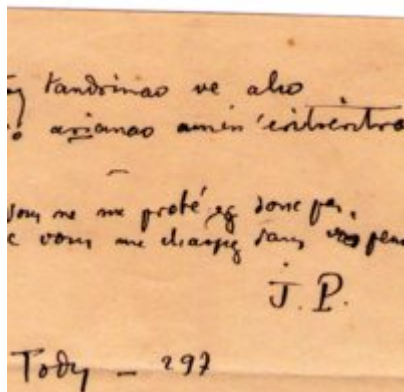 tandrinao ve aho
arianao amin'eritreritra
vous ne me proté ez donc pas,
vous me changez dans
J. P.
Tody - 297